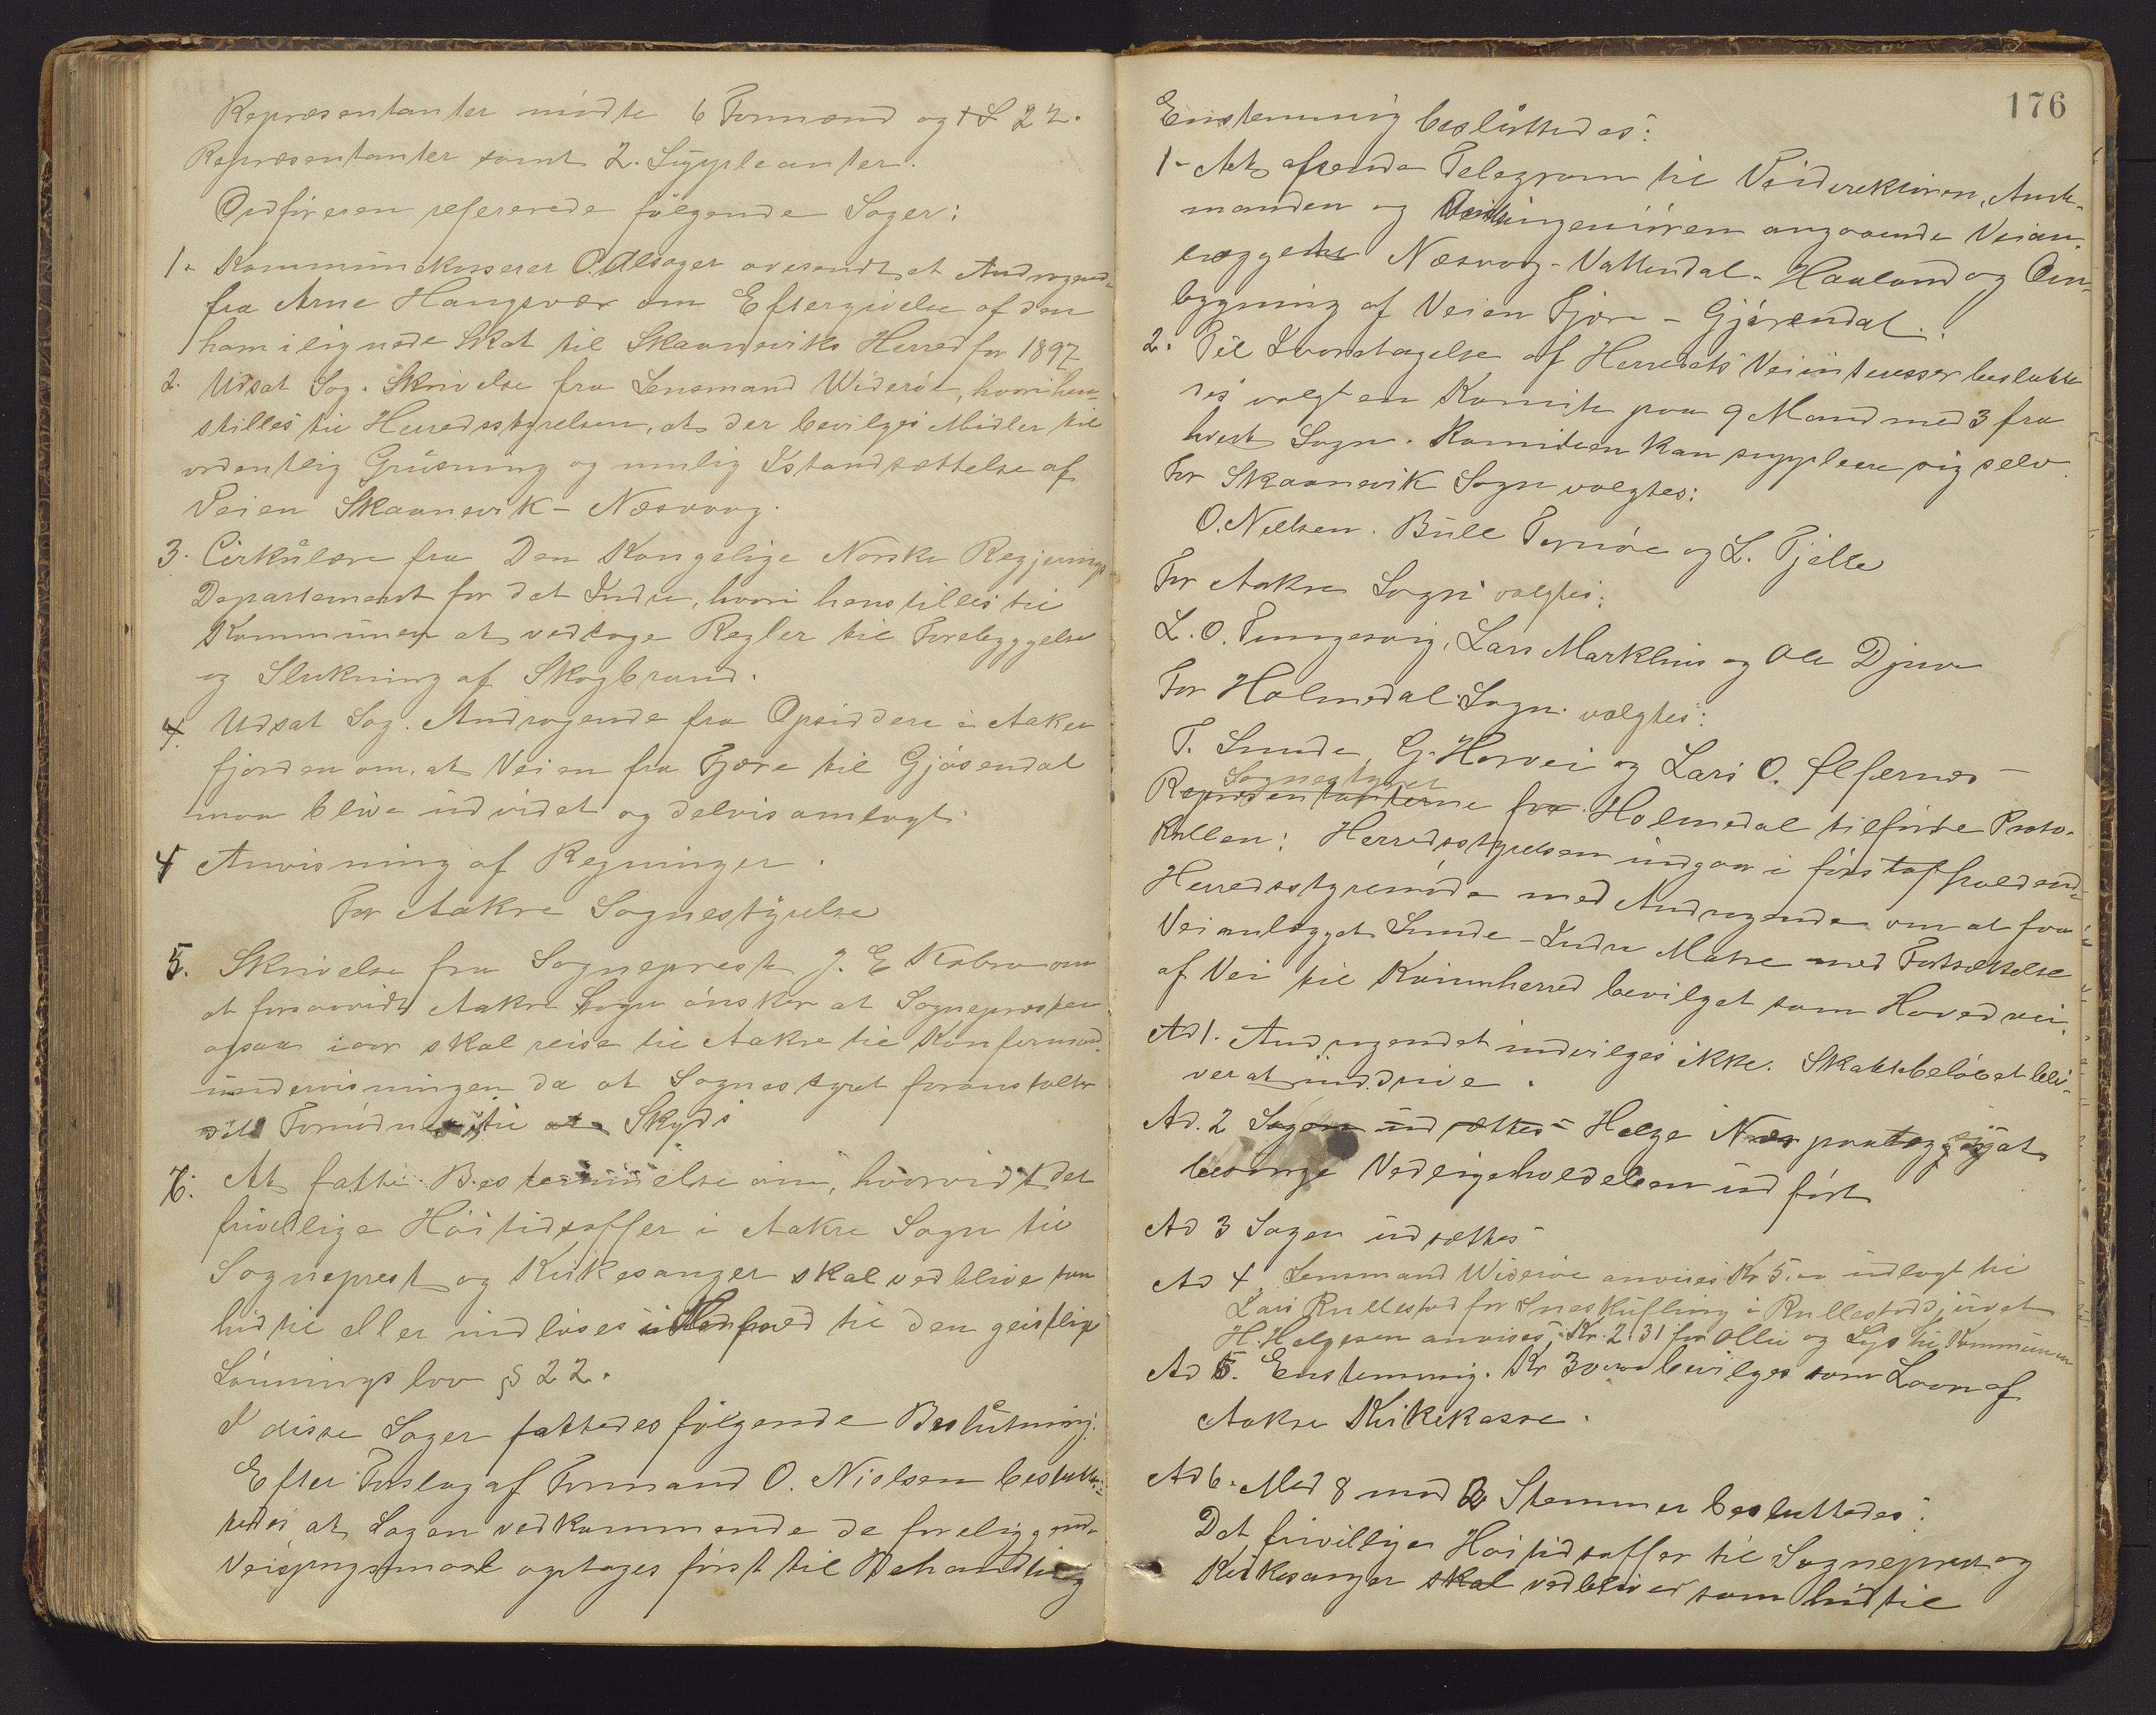 Repræsentanter mødte 6 Formænd og 22.
Repræsentanter samt 2. Suppleanter.
Ordføreren refererede følgende Sager:
1. Kommunekasserer O. Alsager oversendt et Andragende
fra Arne Haugsvær om Eftergivelse af den
ham ilignede Skat til Skaaneviks Herred for 1897
2. Udsat Sag. Skrivelse fra Lensmand Widerøe, hvori hen-
stilles til Herredsstyrelsen, at der bevilges Midler til
ordentlig Grusning og mulig Istandsættelse af
Veien Skaanevik - Næsvaag.
3. Cirkulære fra Den Kongelige Norske Regjerings
Departement for det Indre, hvori henstilles til
Kommunen at vedtage Regler til Forebyggelse
og Slukning af Skogbrand.
4. Udsat Sag. Andragende fra Opsiddere i Aakre
fjorden om, at Veien fra Fjære til Gjøsendal
maa blive udvidet og delvis omlagt.
4 Anvisning af Regninger.
For Aakre Sognestyrelse
5. Skrivelse fra Sogneprest J. E. Kobro om
at forsaavidt Aakre Sogn ønsker at Sognepresten
ogsaa iaar skal reise til Aakre til Konfirmand-
undervisningen da at Sognestyret foranstalter
det Fornødne til Skyds
6. At fatte Bestemmelse om, hvorvidt det
frivillige Høitidsoffer i Aakre Sogn til
Sogneprest og Kirkesanger skal vedblive som
hidtil eller indløses i Henhold til den geistlige
Lønningslov § 22.
I disse Sager fattedes følgende Beslutning:
Efter Forslag af Formand O. Nielsen beslut-
tedes at Sagen vedkommende de foreliggende
Veispørgsmaal optages først til Behandling
176
Enstemmig besluttedes:
1- At afsende Telegram til Veidirektøren, Amt-
manden og Amtsingeniøren angaaende Veian-
læggene Næsvaag - Vattendal - Haaland og Om-
bygning af Veien Fjære - Gjøsendal.
2. Til Ivaretagelse af Herredets Veiinteresser beslutte
des valgt en Komite paa 9 Mand med 3 fra
hvert Sogn. Komiteen kan supplere sig selv.
For Skaanevik Sogn valgtes:
O. Nielsen. Bull Tornøe og L. Fjelle
For Aakre Sogn valgtes:
L. O. Tungesvig, Lars Markhus og Ole Djuve
For Holmedal Sogn valgtes:
T. Sunde, G. Horvei og Lars O. Ølfernes -
Sognestyret
Repræsentanterne fra Holmedal tilførte Proto-
kollen: Herredsstyrelsen indgaar i først afholdende
Herredsstyremøde med Andragende om at faa
Veianlægget Sunde - Indre Matre med Fortsættelse
af Vei til Kvinnherred bevilget som Hovedvei.
Ad 1. Andragendet indvilges ikke. Skattebeløbet bli-
ver at inddrive.
Ad. 2 Sagen udsættes - Helge Næs paatog sig at
besørge Vedligeholdelsen udført
Ad 3 Sagen udsættes
Ad 4. Lensmand Widerøe anvises Kr 5.00 udlagt til
Lars Rullestad for Sneskufling i Rullestadsjuvet
H. Helgesen anvises Kr. 2.31 for Olie og Lys til Kommunen
Ad 5. Enstemmig. Kr 30.00 bevilges som Laan af
Aakre Kirkekasse.
Ad 6. Med 8 mod 2 Stemmer besluttedes:
Det frivillige Høitidsoffer til Sogneprest og
Kirkesanger skal vedbliver som hidtil